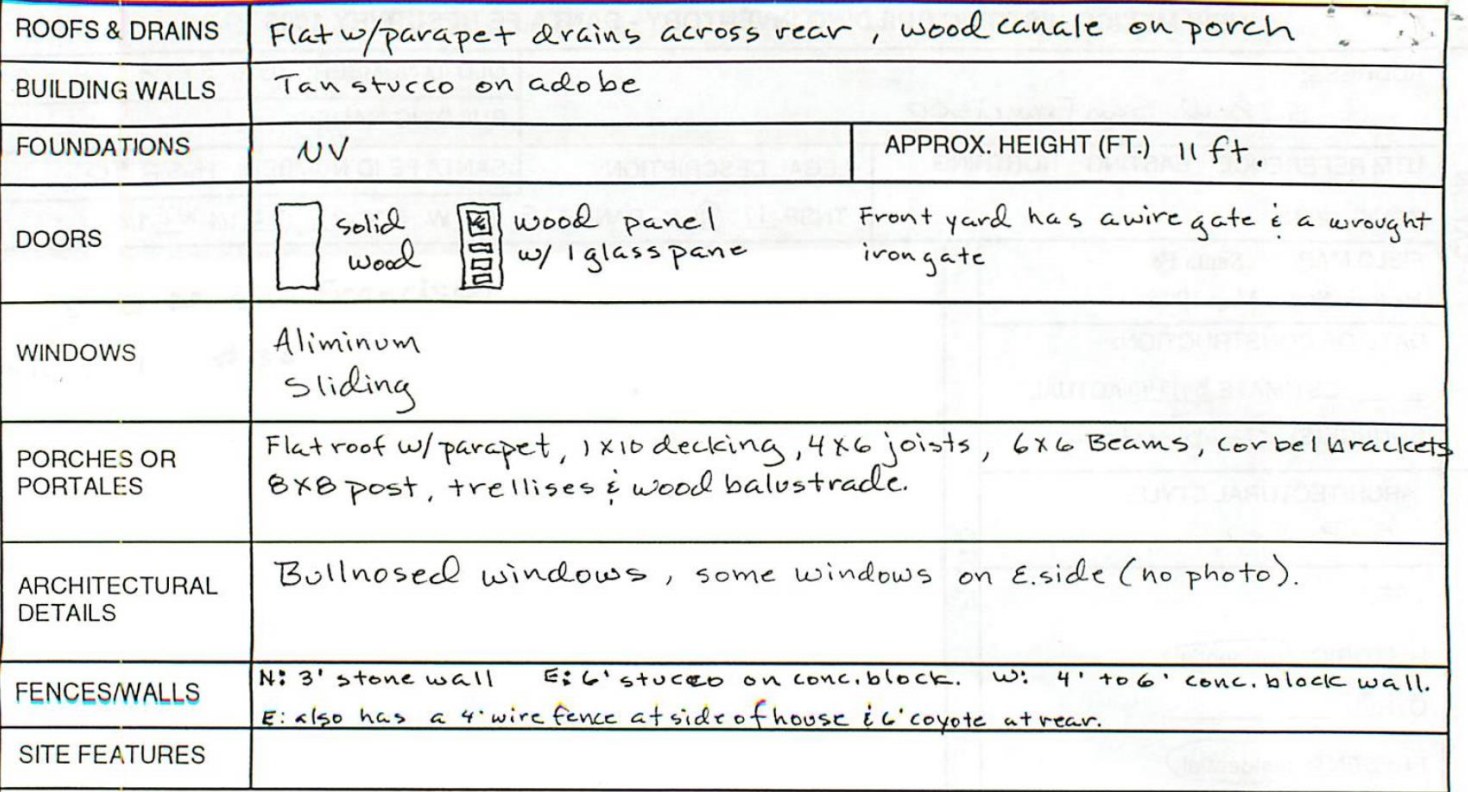 ROOFS & DRAINS Flat w/parapet drains across rear, wood canale on porch
BUILDING WALLS Tan stucco on adobe
FOUNDATIONS NV APPROX. HEIGHT (FT.) 11 ft.
DOORS
solid
wood
wood panel
w/ 1 glass pane
Front yard has a wire gate & a wrought
iron gate
WINDOWS
Aliminum
Sliding
PORCHES OR
PORTALES
Flat roof w/parapet, 1x10 decking, 4x6 joists, 6x6 Beams, corbel brackets
8x8 post, trellises & wood balustrade.
ARCHITECTURAL
DETAILS
Bullnosed windows, some windows on E.side (no photo).
FENCES/WALLS
N: 3' stone wall E: 6' stucco on conc. block. W: 4' to 6' conc. block wall.
E: also has a 4' wire fence at side of house & 6' coyote at rear.
SITE FEATURES